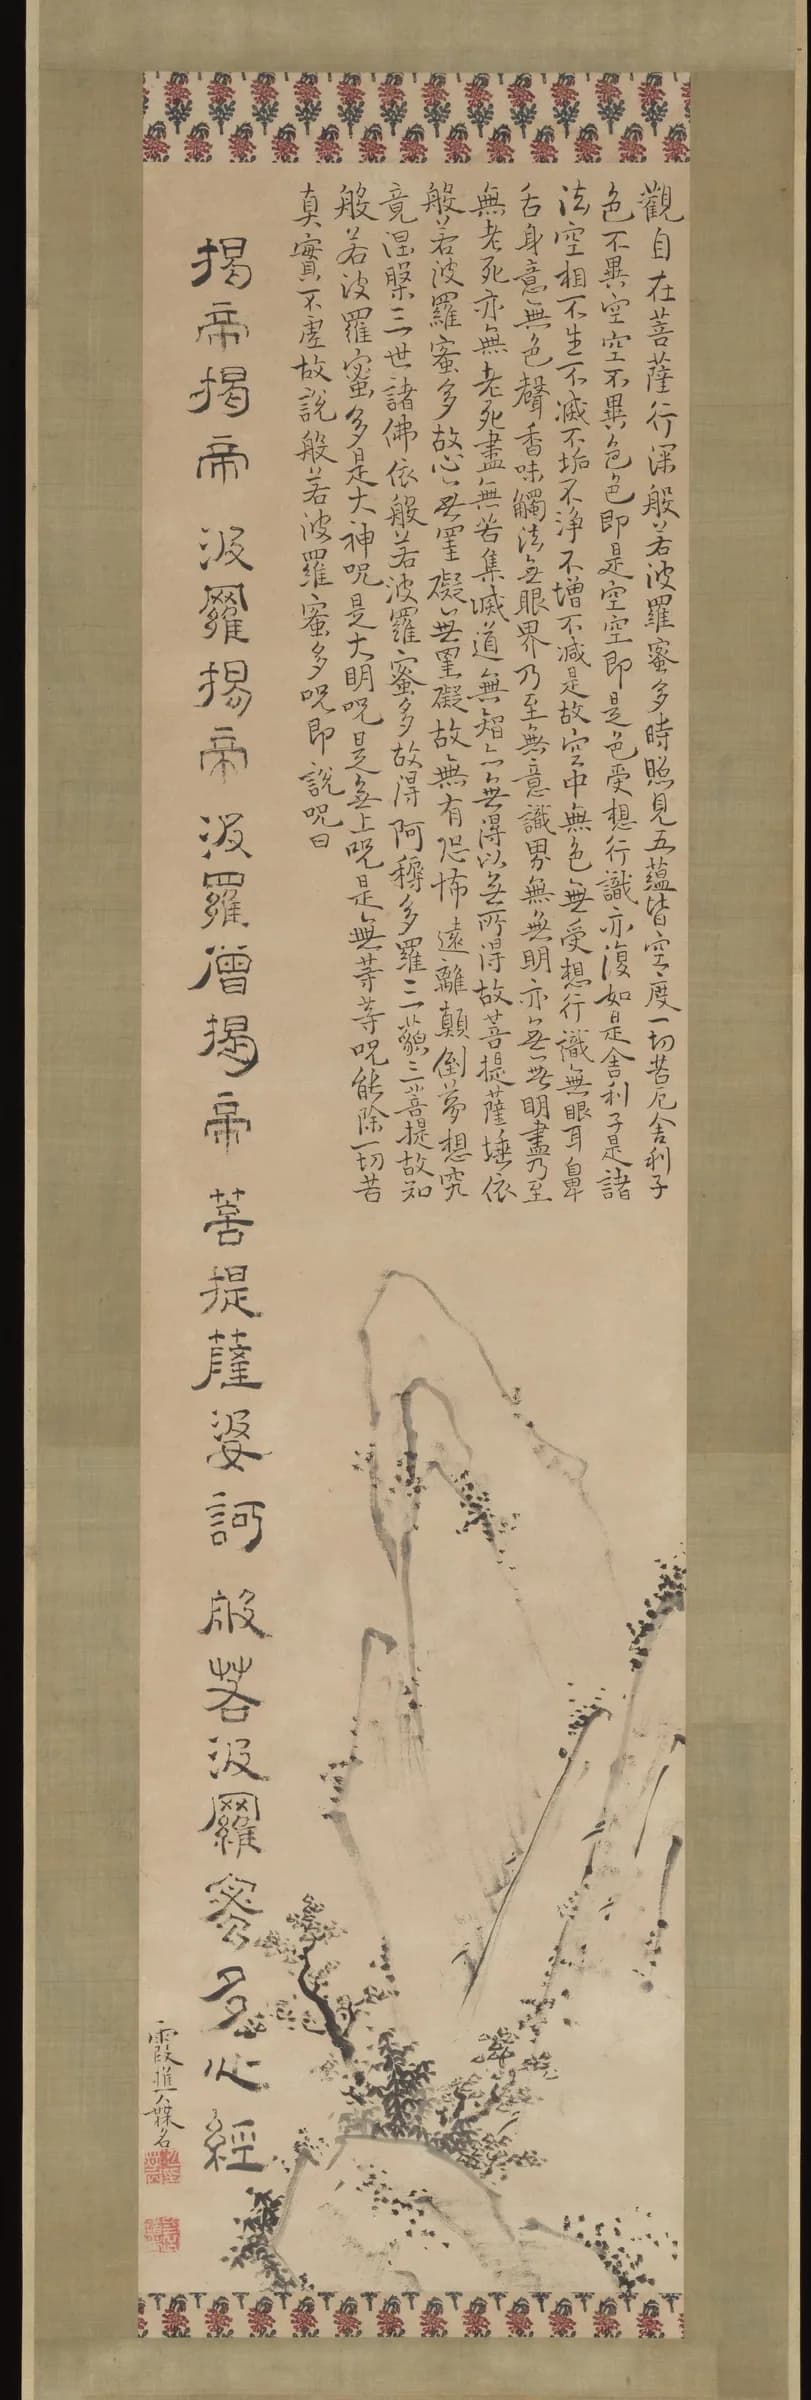 觀自在菩薩行深般若波羅蜜多時照見五蘊皆空度一切苦厄舍利子
色不異空空不異色色即是空空即是色受想行識亦復如是舍利子是諸
法空相不生不滅不垢不淨不增不減是故空中無色無受想行識無眼耳鼻
舌身意無色聲香味觸法無眼界乃至無意識界無無明亦无無明盡乃至
無老死亦無老死盡無苦集滅道無智亦無得以無所得故菩提薩埵依
般若波羅蜜多故心无罣礙無罣礙故無有恐怖遠離顛倒夢想究
竟涅槃三世諸佛依般若波羅蜜多故得阿耨多羅三藐三菩提故知
般若波羅蜜多是大神咒是大明咒是無上咒是無等等咒能除一切苦
真實不虛故說般若波羅蜜多咒即說咒曰
揭帝揭帝 波羅揭帝 波羅僧揭帝 菩提薩婆訶 般若波羅蜜多心經
霞樵無名